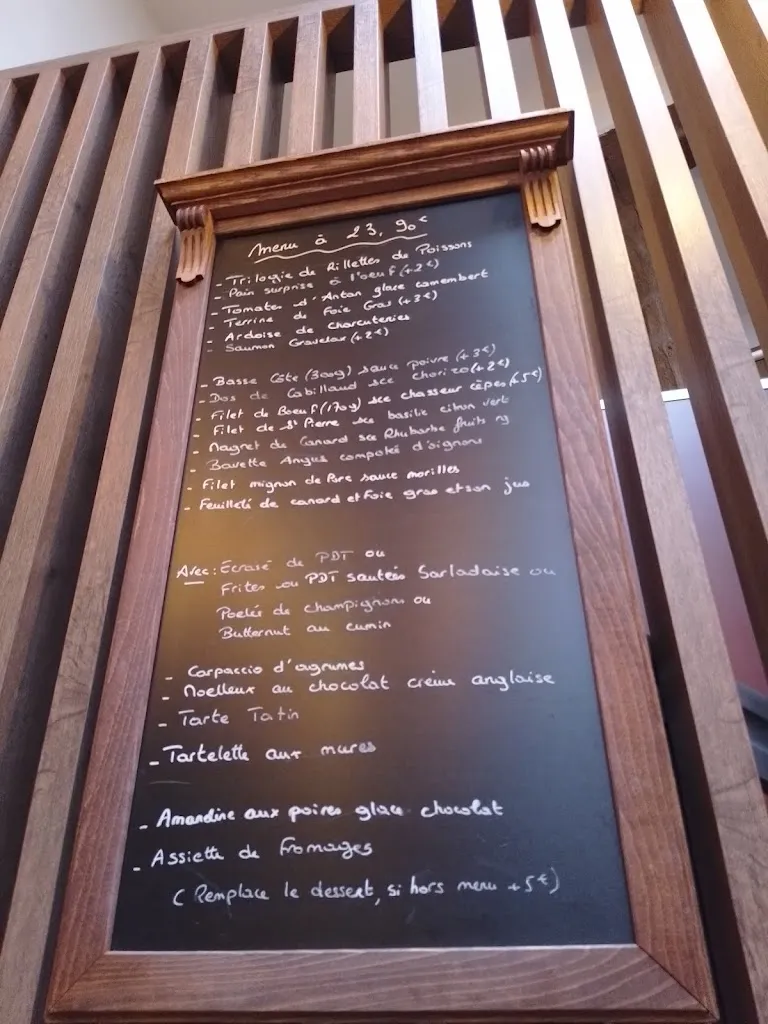 menu à 23,90€
- Trilogie de Rillettes de Poissons
- Pain surprise à l'oeuf (+2€)
- Tomates d'Antan glace camembert
- Terrine de Foie Gras (+3€)
- Ardoise de charcuteries
- Saumon Gravelax (+2€)
- Basse Côte (300g) sauce poivre (+3€)
- Dos de Cabillaud sce chorizo (+2€)
Filet de Boeuf (170g) sce chasseur cèpes (+5€)
- Filet de St Pierre sce basilic citron vert
- Magret de Canard sce Rhubarbe fruits rg
- Bavette Angus compotée d'oignons
- Filet mignon de Porc sauce morilles
- Feuilleté de canard et Foie gras et son jus
Avec : Ecrasé de PDT ou
Frites ou PDT sautées Sarladaise ou
Poelée de champignons ou
Butternut au cumin
- Carpaccio d'agrumes
- Moelleux au chocolat crème anglaise
- Tarte Tatin
- Tartelette aux mures
- Amandine aux poires glace chocolat
- Assiette de Fromages
( Remplace le dessert, si hors menu +5€)